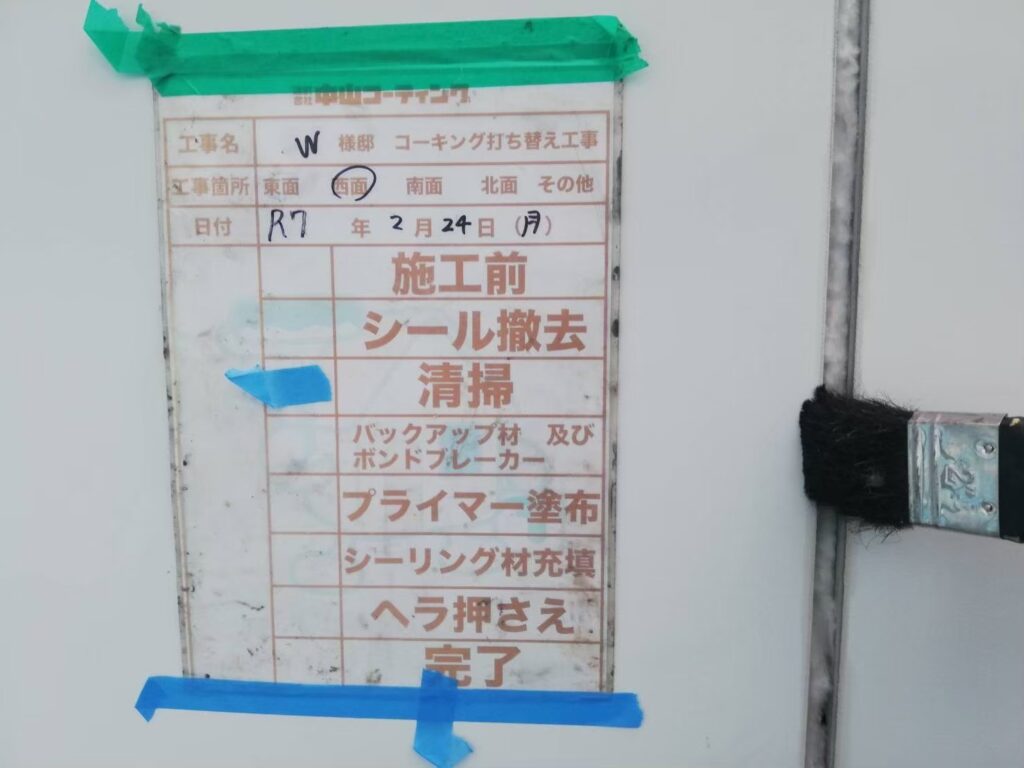 株式会社 中山コーティング
工事名 W 様邸 コーキング打ち替え工事
工事箇所 東面 西面 南面 北面 その他
日付 R7 年 2 月 24 日 (月)
施工前
シール撤去
清掃
バックアップ材 及び
ボンドブレーカー
プライマー塗布
シーリング材充填
ヘラ押さえ
完了